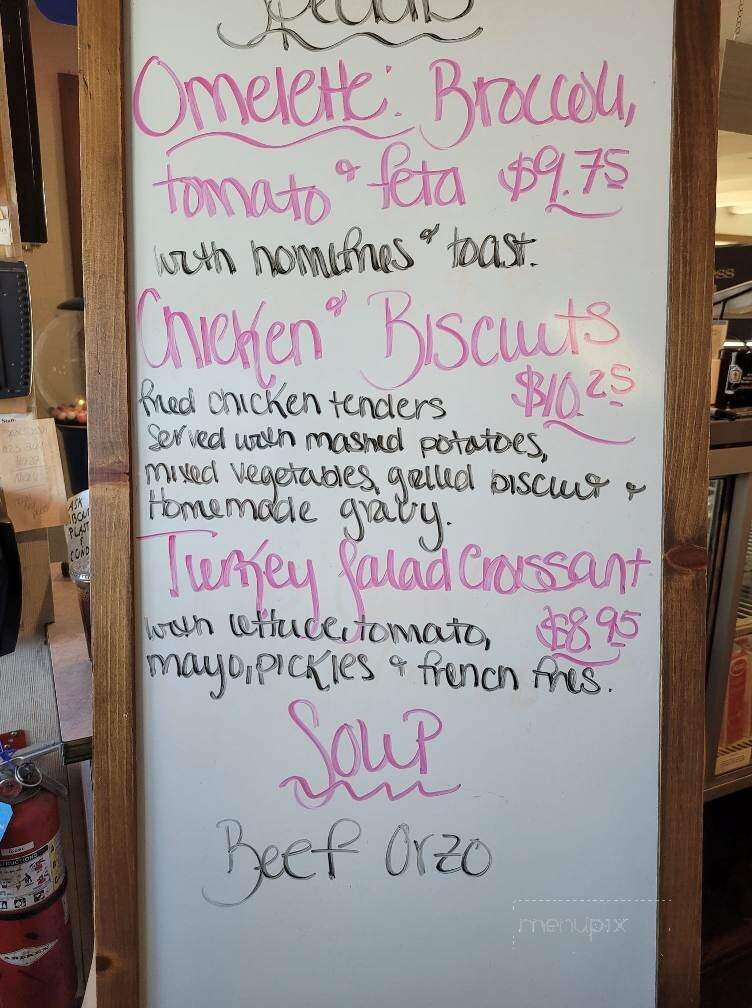 Specials
Omelette: Broccoli,
tomato & feta $9.75
with homefries & toast.
Chicken & Biscuits
$10.25
fried chicken tenders
served with mashed potatoes,
mixed vegetables, grilled biscuit &
Homemade gravy.
Turkey Salad Croissant
with lettuce, tomato, $8.95
mayo, pickles & french fries.
Soup
Beef Orzo
menupix